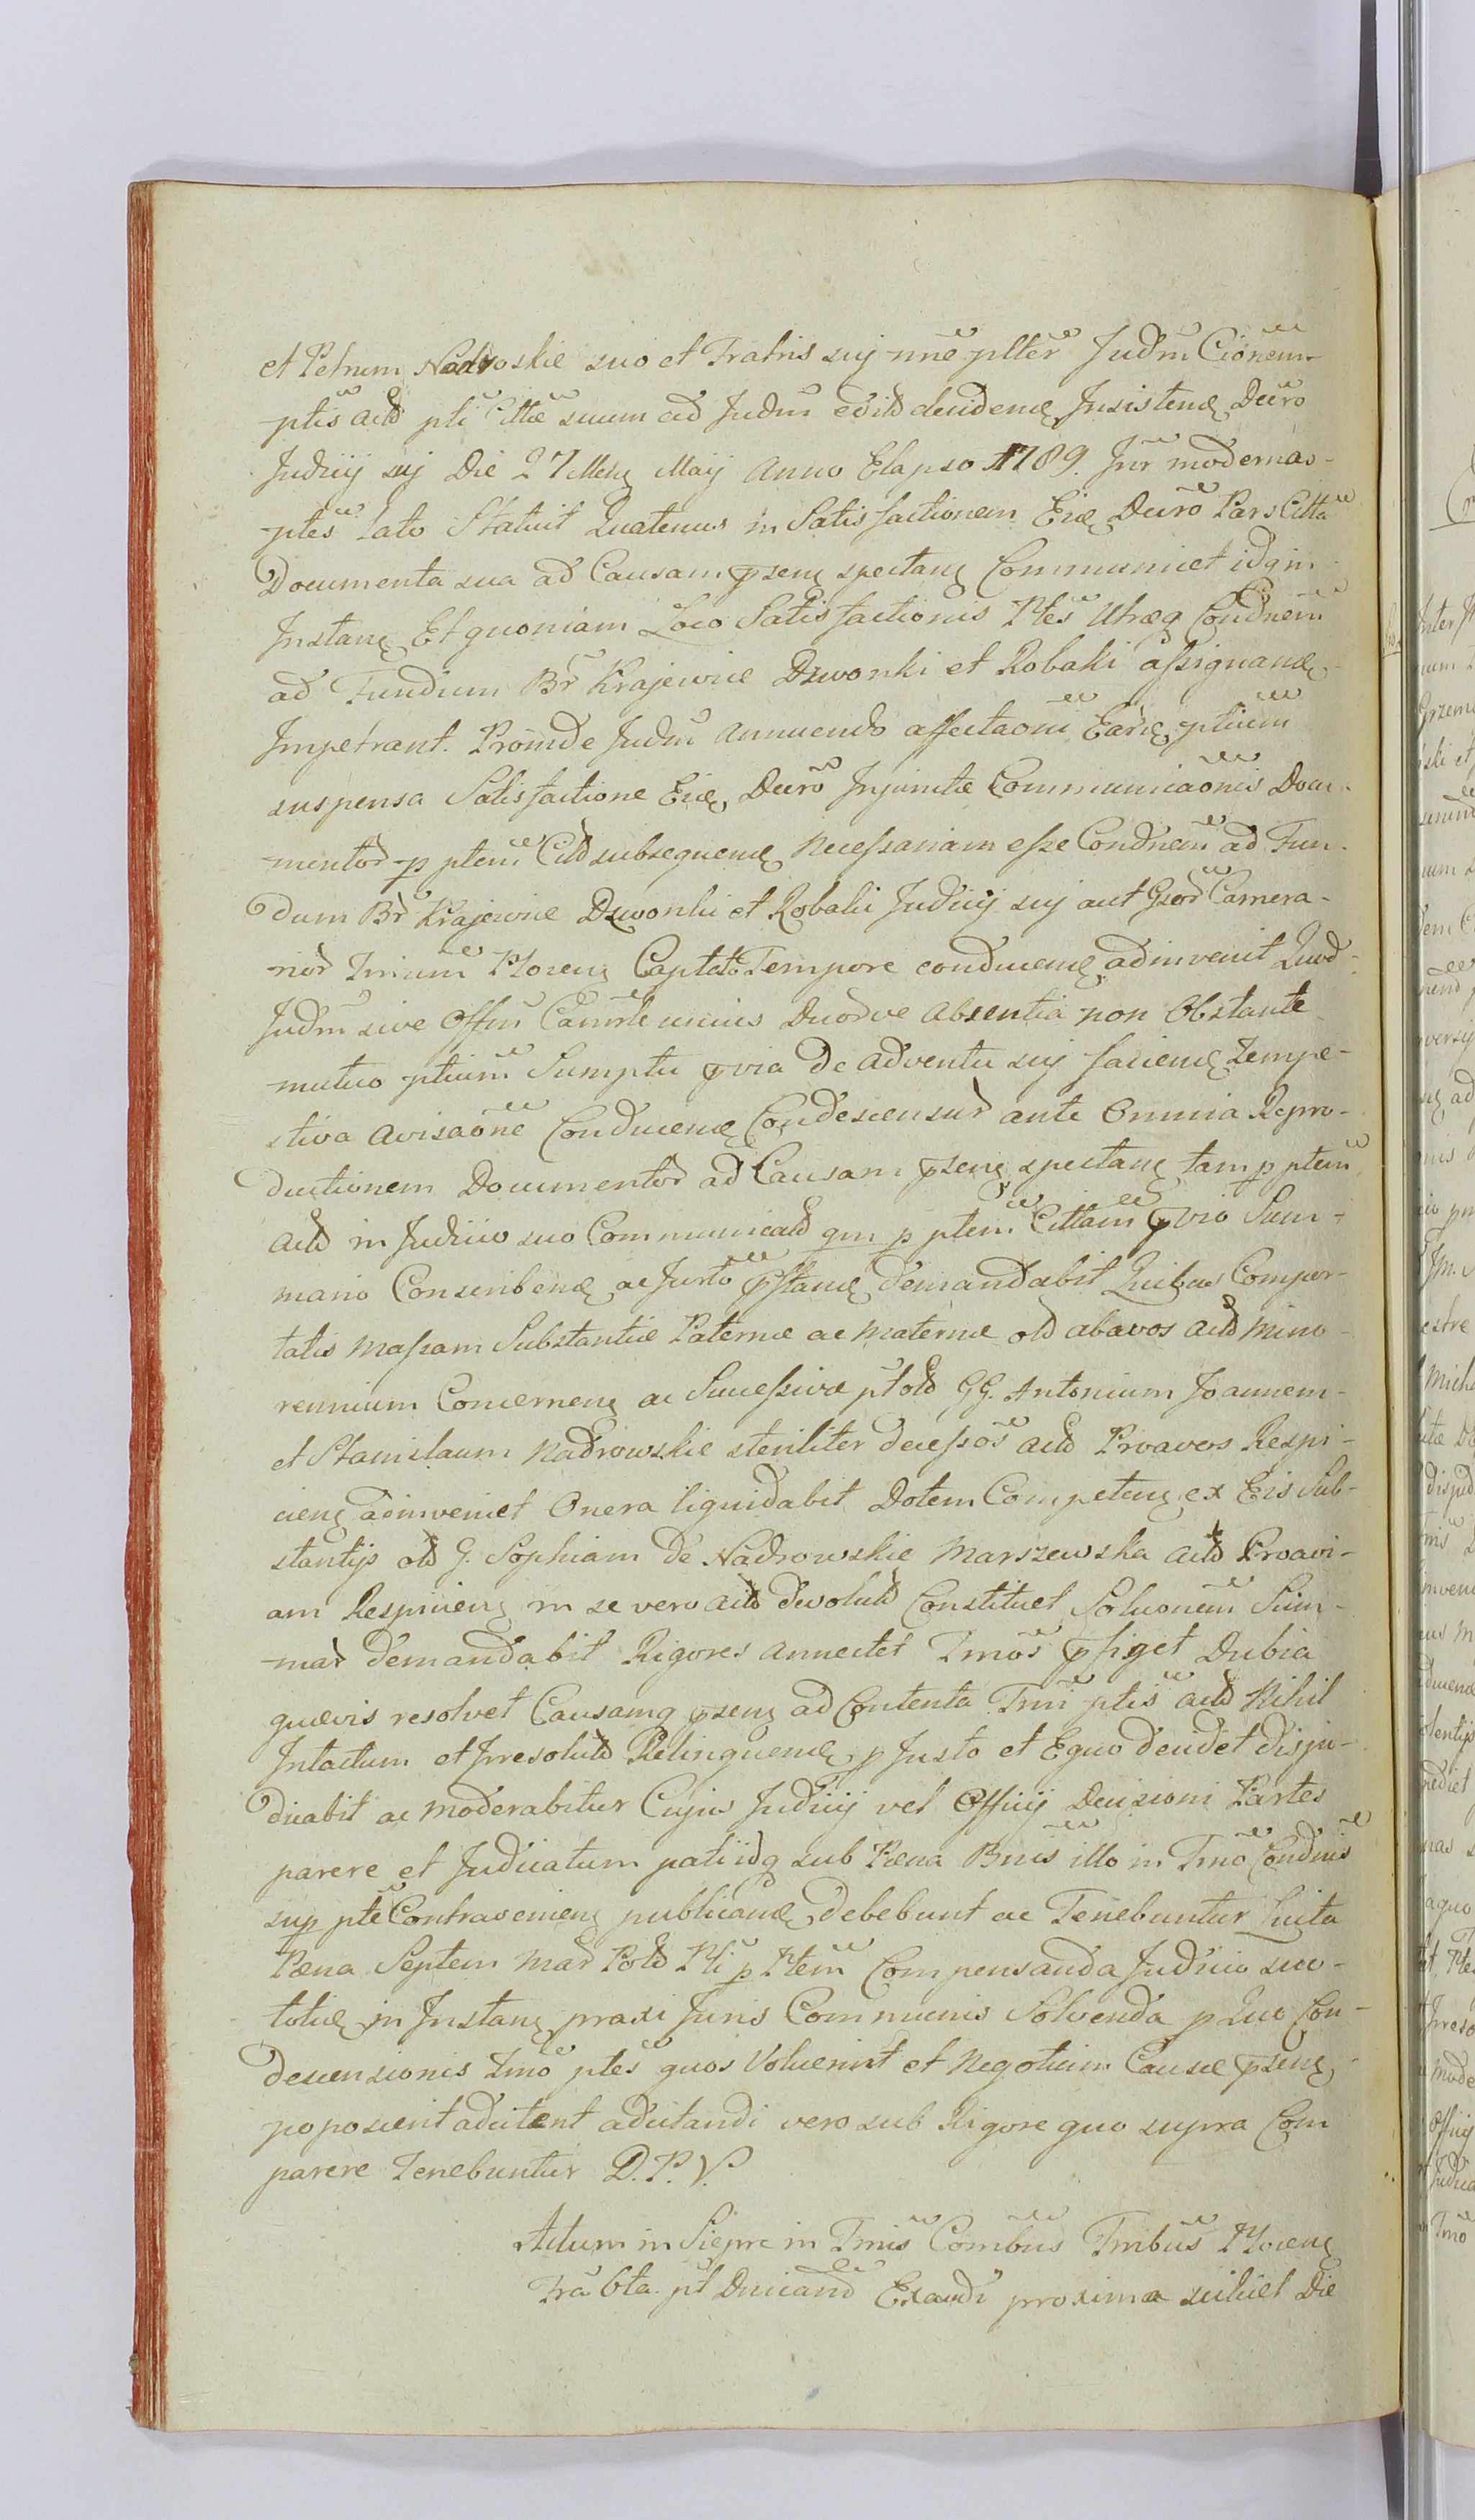 et Petrum Nadroskie suo et Fratris suj nne plter Judm Cionem
ptis actd pti Cittae suum ad Judm edito decidenę Insistenę Decro
Judicij suj Die 27 Mens Maij Anno Elapso 1789. Inr modernas
ptes lato Statuit Quatenus in Satisfactionem Eię Decro Pars Citta
Documenta sua ad Causam pseng spectang Communicet idq in
Instang Et quoniam Loco Satisfactionis Ptes Utraeq Condnem
ad Fundum Br Krajewice Dzwonki et Robaki assignandę
Impetrant. Proinde Judm annuendo affectaoni Earę ptium
suspensa Satisfactione Eię Decro Injunctae Communicaonis Docu-
mentor p ptem Citd subsequenę necessariam esse Condnem ad Fun-
dum Br Krajewice Dzwonki et Robaki Judicij suj aut Gsor Camera-
rior Trium Ploceng Captato Tempore conducenę adinvenit Quod
Judm sive Offm Camrle unius Duorve Absentia non Obstante
mutuo ptium Sumptu pvia de adventu suj faciendę tempe-
stiva avisaone Conducenę Condescensur ante Omnia Repro-
ductionem Documentor ad Causam pseng spectang tam p ptem
actd in Judicio suo Communicatd qm p ptem Cittam pvio Sum-
mario Conscribenę ac Jurto pstandę demandabit Quibus Compor-
tatis Massam Substantiae Paternae ac Maternae old abavos actd Mino-
rennium Concerneng ac Successive pt old GG. Antonium Joannem
et Stanislaum Nadrowskie steriliter decessos actd Proavos Respi-
cieng adinveniet Onera liquidabit Dotem Competeng ex Eis Sub-
stantijs old G. Sophiam de Nadrowskie Marszewska actd Proavi-
am Respicieng in se vero actd devolutd Constituet Soluonem Sum-
mar demandabit Rigores annectet Tmos pfiget Dubia
quaevis resolvet Causamq pseng ad Contenta Tmi ptis actd Nihil
Intactum et Irresolutd Relinquendę p Justo et Equo decidet disju-
dicabit ac moderabitur Cujus Judicij vel Officij Decisioni Partes
parere et Judicatum pati idq sub Paena Bnis illo in Tmo Condnis
sup pte Contravenieng publicandę debebunt ac Tenebuntur Luita
Paena Septem Mar Pold Pli p Ptem Compensanda Judicio suo
totię in Instang praxi Juris Communis Solvenda p Quo Con-
descensionis Tmo ptes quos Voluerint et Negotium Causae pseng
poposcerit adcitent adcitandi vero sub Rigore quo supra Com
parere Tenebuntur D.P.V.
Actum in Sierpc in Tmis Combus Tmibus Ploceng
Fra 6ta pt Dnicand Exaudi proxima scilicet Die